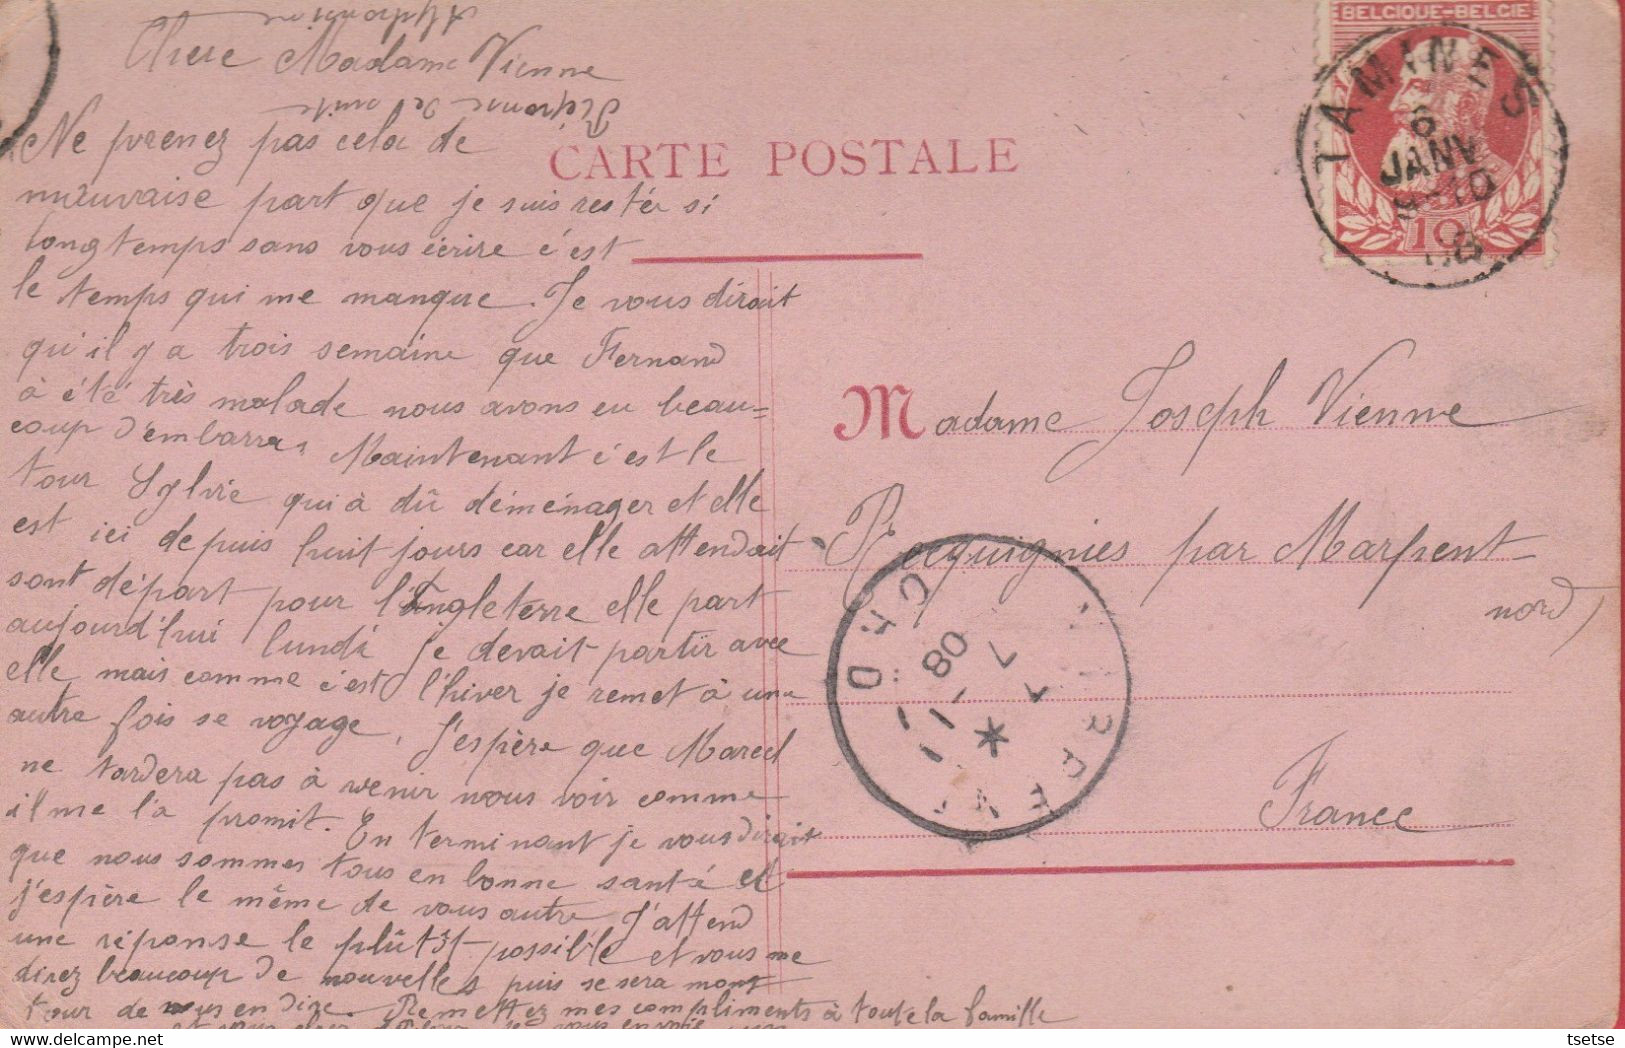 Chere Madame Vienne
Réponse de suite
Ne prenez pas cela de
mauvaise part que je suis restér si
longtemps sans vous écrire c'est
le temps qui me manque. Je vous dirait
qu'il y a trois semaine que Fernand
à été très malade nous avons eu beau=
coup d'embarras Maintenant c'est le
tour Sylvie qui à dû déménager et elle
est ici depuis huit jours car elle attendait
sont départ pour l'Angleterre elle part
aujourd'hui lundi Je devait partir avec
elle mais comme c'est l'hiver je remet à une
autre fois se voyage, J'espère que Marcel
ne tardera pas à venir nous voir comme
il me l'a promit. En terminant je vous dirait
que nous sommes tous en bonne santé et
j'espère le même de vous autre J'attend
une réponse le plûtôt possible et vous me
direz beaucoup de nouvelles puis se sera mont
tour de vous en dire. Remettez mes compliments à toute la famille
CARTE POSTALE
BELGIQUE-BELGIE
10
TAMINES
6
JANV
9-10
08
Madame Joseph Vienne
Recquignies par Marpent
nord,
France
NORD
7 - 1
08
tsetse